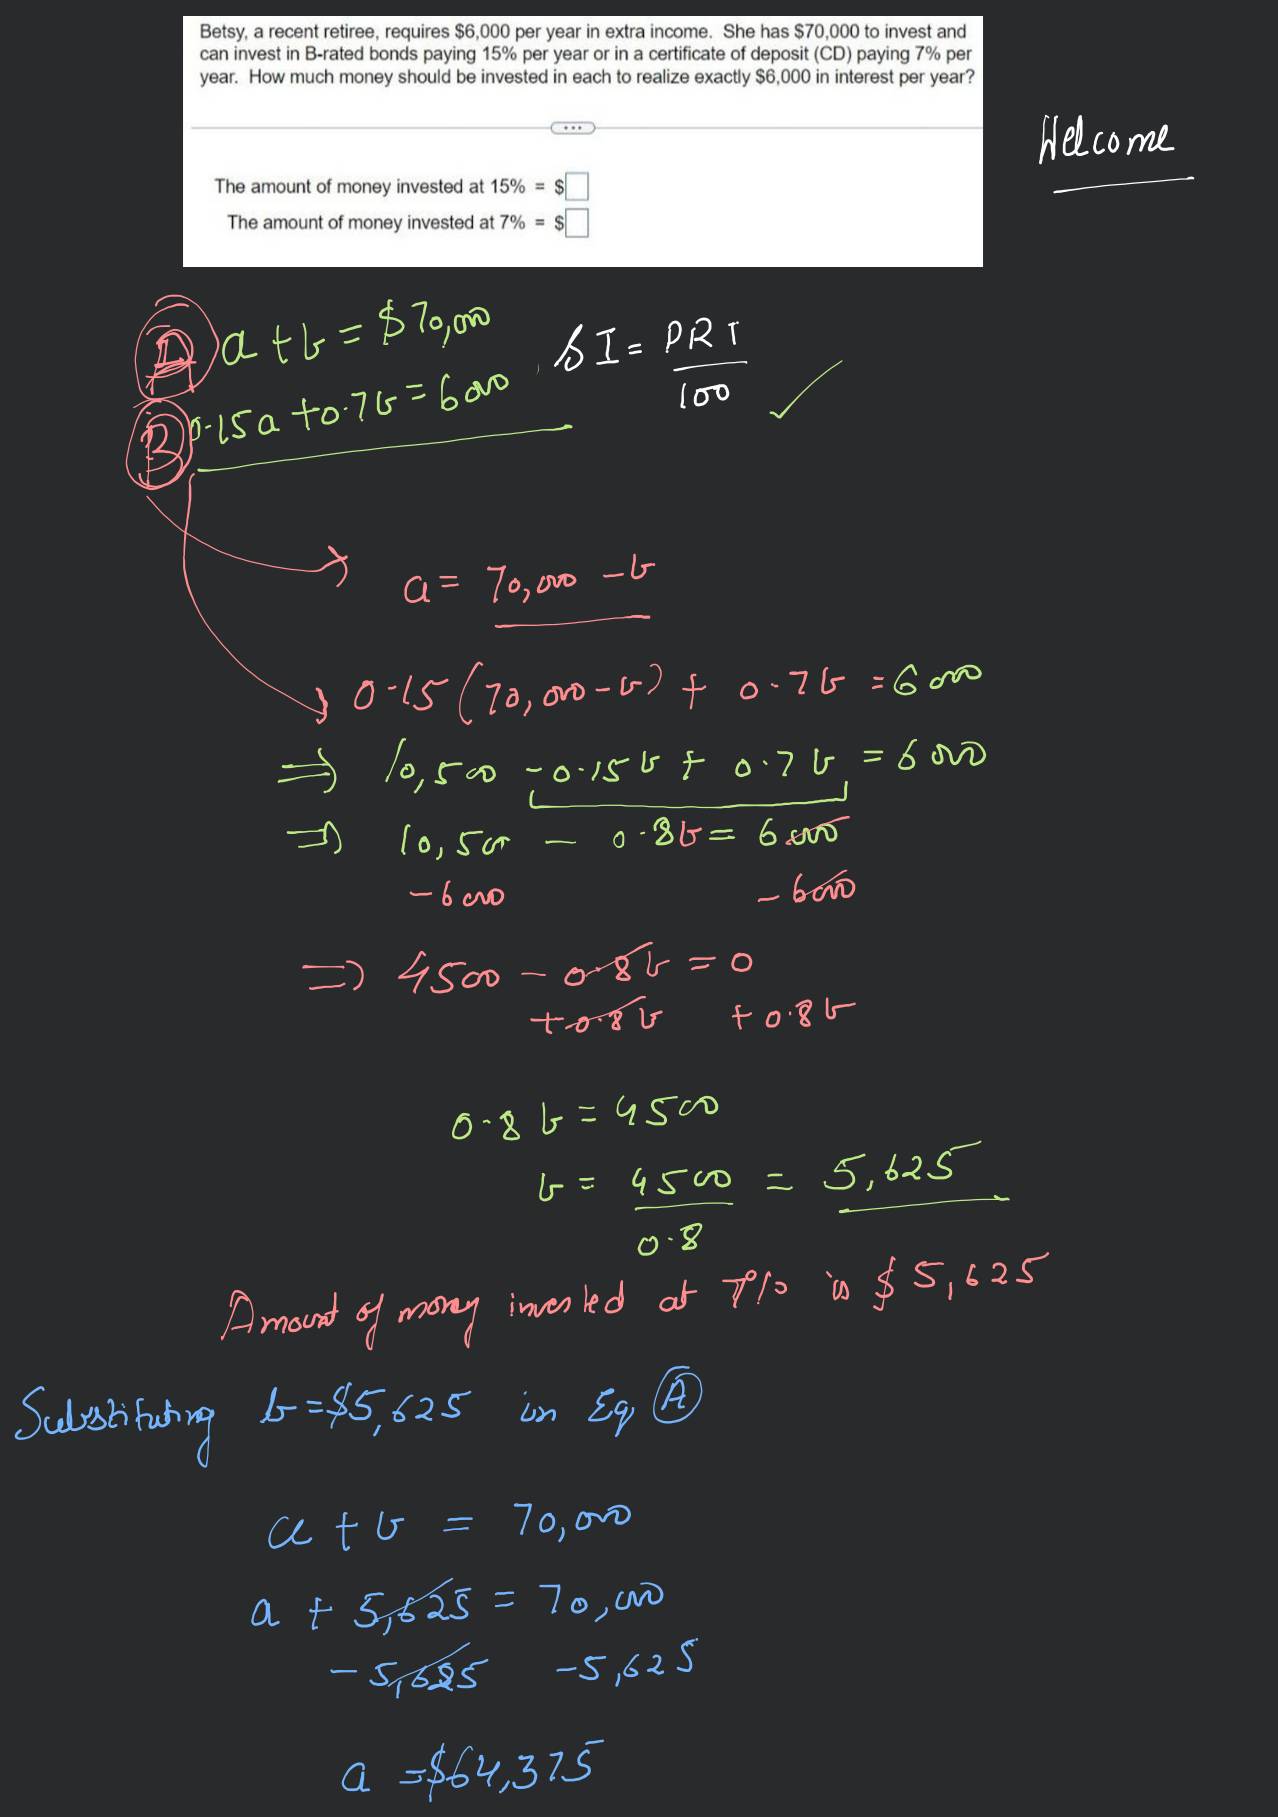 Betsy, a recent retiree, requires $6,000 per year in extra income. She has $70,000 to invest and
can invest in B-rated bonds paying 15% per year or in a certificate of deposit (CD) paying 7% per
year. How much money should be invested in each to realize exactly $6,000 in interest per year?
Welcome
The amount of money invested at 15% = $
The amount of money invested at 7% = $
A a + b = $70,000
SI = PRT / 100 ✓
B 0.15a + 0.7b = 6000
a = 70,000 - b
0.15 (70,000 - b) + 0.7b = 6000
⇒ 10,500 - 0.15b + 0.7b = 6000
⇒ 10,500 - 0.8b = 6000
-6000 -6000
⇒ 4500 - 0.8b = 0
+0.8b +0.8b
0.8b = 4500
b = 4500 / 0.8 = 5,625
Amount of money invested at 7% is $5,625
Substituting b = $5,625 in Eq A
a + b = 70,000
a + 5,625 = 70,000
- 5,625 -5,625
a = $64,375